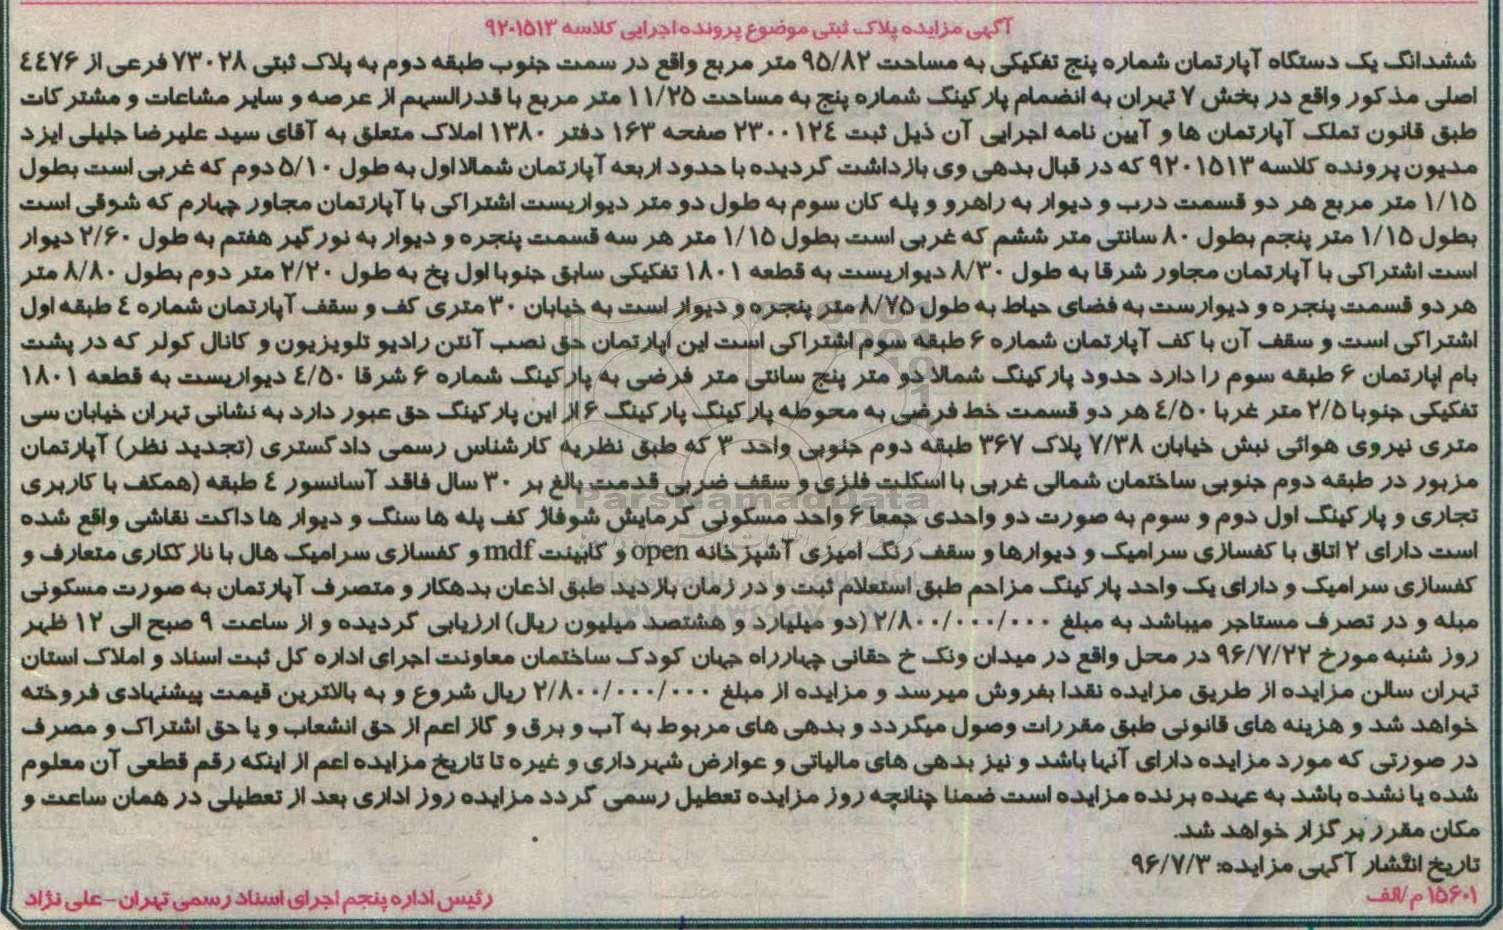 آگهی مزایده پلاک ثبتی موضوع پرونده اجرایی کلاسه ۹۲۰۱۵۱۳
ششدانگ یک دستگاه آپارتمان شماره پنج تفکیکی به مساحت ۹۵/۸۲ متر مربع واقع در سمت جنوب طبقه دوم به پلاک ثبتی ۷۳۰۲۸ فرعی از ۴۴۷۶
اصلی مذکور واقع در بخش ۷ تهران به انضمام پارکینگ شماره پنج به مساحت ۱۱/۲۵ متر مربع با قدرالسهم از عرصه و سایر مشاعات و مشترکات
طبق قانون تملک آپارتمان ها و آیین نامه اجرایی آن ذیل ثبت ۲۳۰۰۱۲۴ صفحه ۱۶۳ دفتر ۱۳۸۰ املاک متعلق به آقای سید علیرضا جلیلی ایزد
مدیون پرونده کلاسه ۹۲۰۱۵۱۳ که در قبال بدهی وی بازداشت گردیده با حدود اربعه آپارتمان شمالا اول به طول ۵/۱۰ دوم که غربی است بطول
۱/۱۵ متر مربع هر دو قسمت درب و دیوار به راهرو و پله کان سوم به طول دو متر دیواریست اشتراکی با آپارتمان مجاور چهارم که شوقی است
بطول ۱/۱۵ متر پنجم بطول ۸۰ سانتی متر ششم که غربی است بطول ۱/۱۵ متر هر سه قسمت پنجره و دیوار به نورگیر هفتم به طول ۲/۶۰ دیوار
است اشتراکی با آپارتمان مجاور شرقا به طول ۸/۳۰ دیواریست به قطعه ۱۸۰۱ تفکیکی سابق جنوبا اول پخ به طول ۲/۲۰ متر دوم بطول ۸/۸۰ متر
هر دو قسمت پنجره و دیوارست به فضای حیاط به طول ۸/۷۵ متر پنجره و دیوار است به خیابان ۳۰ متری کف و سقف آپارتمان شماره ۴ طبقه اول
اشتراکی است و سقف آن با کف آپارتمان شماره ۶ طبقه سوم اشتراکی است این اپارتمان حق نصب آنتن رادیو تلویزیون و کانال کولر که در پشت
بام اپارتمان ۶ طبقه سوم را دارد حدود پارکینگ شمالا دو متر پنج سانتی متر فرضی به پارکینگ شماره ۶ شرقا ۴/۵۰ دیواریست به قطعه ۱۸۰۱
تفکیکی جنوبا ۲/۵ متر غربا ۴/۵۰ هر دو قسمت خط فرضی به محوطه پارکینگ پارکینگ ۶ از این پارکینگ حق عبور دارد به نشانی تهران خیابان سی
متری نیروی هوائی نبش خیابان ۷/۳۸ پلاک ۳۶۷ طبقه دوم جنوبی واحد ۳ که طبق نظریه کارشناس رسمی دادگستری (تجدید نظر) آپارتمان
مزبور در طبقه دوم جنوبی ساختمان شمالی غربی با اسکلت فلزی و سقف ضربی قدمت بالغ بر ۳۰ سال فاقد آسانسور ۴ طبقه (همکف با کاربری
تجاری و پارکینگ اول دوم و سوم به صورت دو واحدی جمعا ۶ واحد مسکونی گرمایش شوفاژ کف پله ها سنگ و دیوار ها داکت نقاشی واقع شده
است دارای ۲ اتاق با کفسازی سرامیک و دیوارها و سقف رنگ امیزی آشپزخانه open و کابینت mdf و کفسازی سرامیک هال با نازککاری متعارف و
کفسازی سرامیک و دارای یک واحد پارکینگ مزاحم طبق استعلام ثبت و در زمان بازدید طبق اذعان بدهکار و متصرف آپارتمان به صورت مسکونی
مبله و در تصرف مستاجر میباشد به مبلغ ۲/۸۰۰/۰۰۰/۰۰۰ (دو میلیارد و هشتصد میلیون ریال) ارزیابی گردیده و از ساعت ۹ صبح الی ۱۲ ظهر
روز شنبه مورخ ۹۶/۷/۲۲ در محل واقع در میدان ونک خ حقانی چهارراه جهان کودک ساختمان معاونت اجرای اداره کل ثبت اسناد و املاک استان
تهران سالن مزایده از طریق مزایده نقدا بفروش میرسد و مزایده از مبلغ ۲/۸۰۰/۰۰۰/۰۰۰ ریال شروع و به بالاترین قیمت پیشنهادی فروخته
خواهد شد و هزینه های قانونی طبق مقررات وصول میگردد و بدهی های مربوط به آب و برق و گاز اعم از حق انشعاب و یا حق اشتراک و مصرف
در صورتی که مورد مزایده دارای آنها باشد و نیز بدهی های مالیاتی و عوارض شهرداری و غیره تا تاریخ مزایده اعم از اینکه رقم قطعی آن معلوم
شده یا نشده باشد به عهده برنده مزایده است ضمنا چنانچه روز مزایده تعطیل رسمی گردد مزایده روز اداری بعد از تعطیلی در همان ساعت و
مکان مقرر برگزار خواهد شد.
تاریخ انتشار آگهی مزایده: ۹۶/۷/۳
۱۵۶۰۱ م/الف
رئیس اداره پنجم اجرای اسناد رسمی تهران-علی نژاد
ParsNamadData